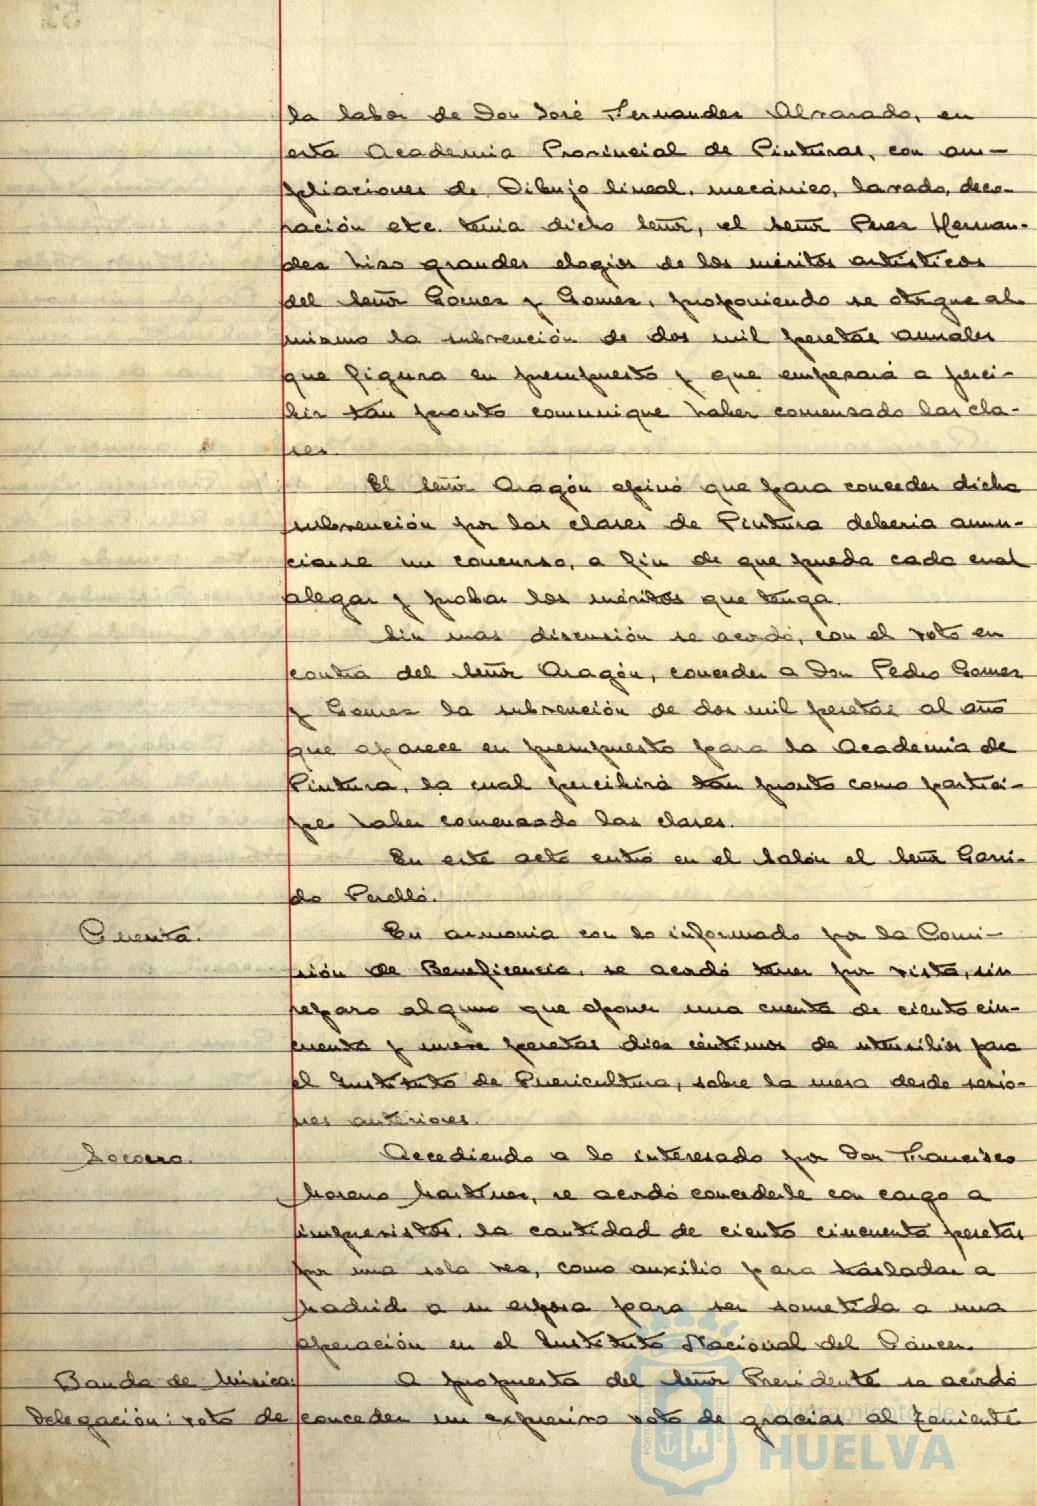 la labor de Don José Fernandez Alvarado, en
esta Academia Provincial de Pinturas, con am-
pliaciones de Dibujo lineal, mecánico, lavado, deco-
ración etc. tenia dicho Señor, el Señor Perez Hernan-
dez hizo grandes elogios de los méritos artísticos
del Señor Gomez y Gomez, proponiendo se otorgue al
mismo la subvención de dos mil pesetas anuales
que figura en presupuesto y que empezará a perci-
bir tan pronto comunique haber comenzado las cla-
ses.
El Señor Aragón opinó que para conceder dicha
subvención por las clases de Pintura deberia anun-
ciarse un concurso, a fin de que pueda cada cual
alegar y probar los méritos que tenga.
Sin mas discusión se acordó, con el voto en
contra del Señor Aragón, conceder a Don Pedro Gomez
y Gomez la subvención de dos mil pesetas al año
que aparece en presupuesto para la Academia de
Pintura, la cual percibirá tan pronto como partici-
pe haber comenzado las clases.
En este acto entró en el Salón el Señor Garri-
do Perelló.
Cuenta. En armonia con lo informado por la Comi-
sión de Beneficencia, se acordó tener por vista, sin
reparo alguno que oponer una cuenta de ciento cin-
cuenta y nueve pesetas diez céntimos de utensilios para
el Instituto de Puericultura, sobre la mesa desde sesio-
nes anteriores.
Socorro. Accediendo a lo interesado por Don Francisco
Moreno Martinez, se acordó concederle con cargo a
imprevistos, la cantidad de ciento cincuenta pesetas
por una sola vez, como auxilio para trasladar a
Madrid a su esposa para ser sometida a una
operación en el Instituto Nacional del Cáncer.
Banda de Música: A propuesta del Señor Presidente se acordó
Delegación: voto de conceder un expresivo voto de gracias al Teniente
Ayuntamiento de
HUELVA